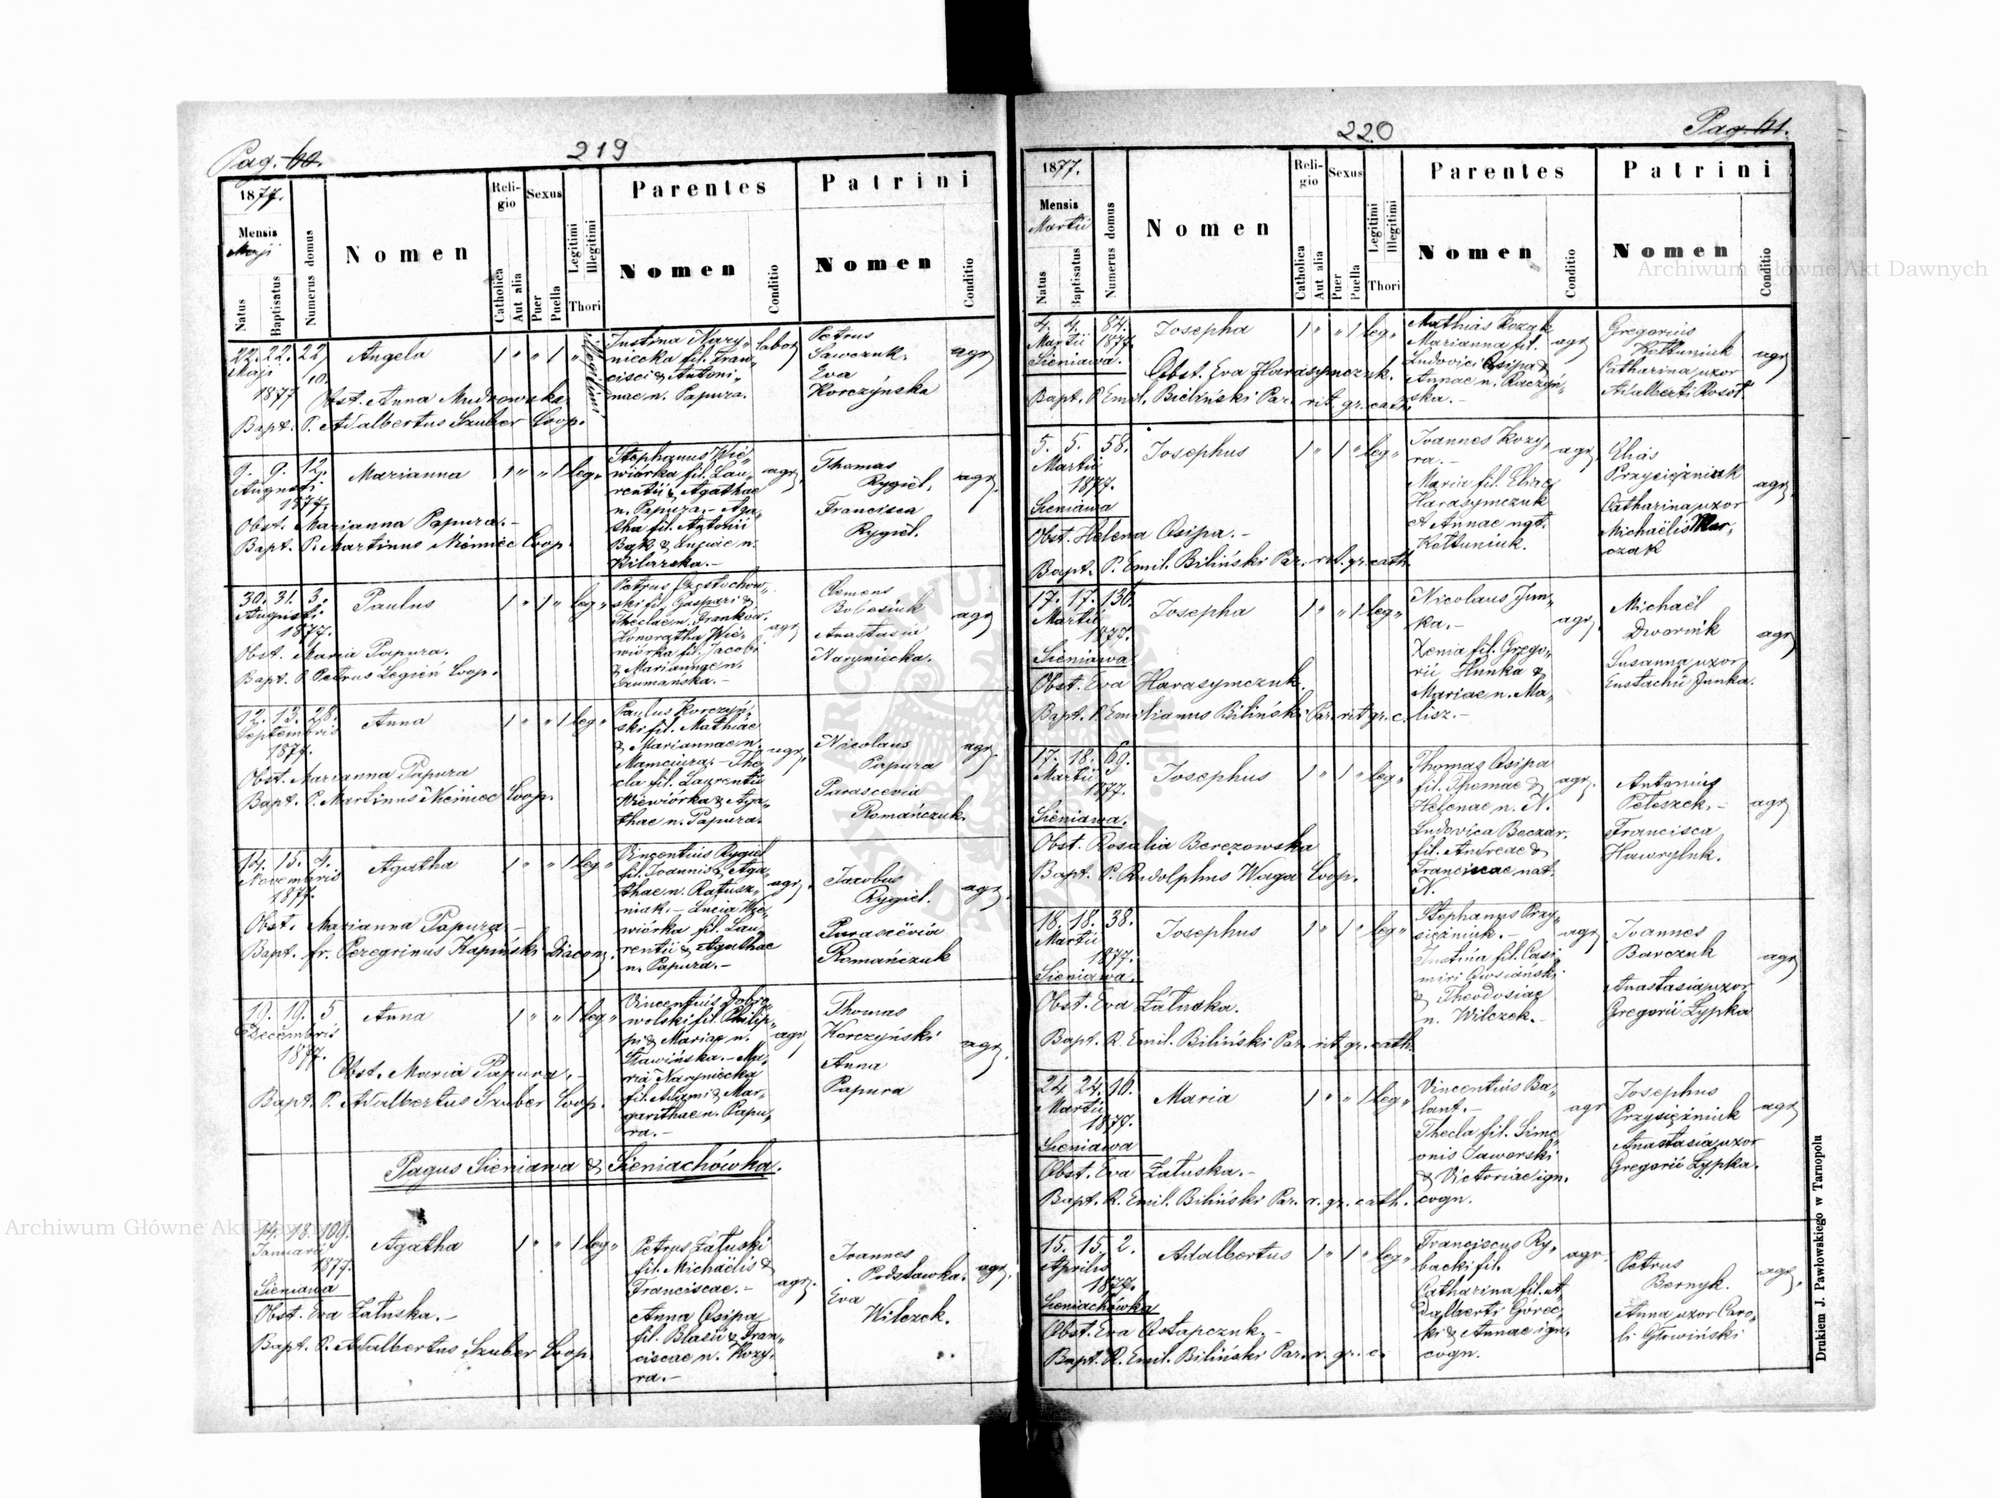 Pag. 60.
219
1877.
Mensis
Maji
Natus
Baptisatus
Numerus domus
Nomen
Religio
Catholica
Aut alia
Sexus
Puer
Puella
Legitimi
Illegitimi
Thori
Parentes
Nomen
Conditio
Patrini
Nomen
Conditio
22. 22. 22/10.
Maji
1877
Angela
1 " " 1 " Illegitimi
Obst. Anna
Bapt. P. Adalbertus Szuber Coop.
Justina Nary-
niecka fil. Fran-
cisci & Antoni-
nae n. Papura.
labor
Petrus
Sawczuk.
Eva
Korczyńska
agr.
9. 9. 12.
Augusti
1877.
Marianna
1 " " 1 leg "
Obst. Marianna Papura. -
Bapt. P. Martinus Niemiec Coop.
Stephanus Wie-
wiórka fil. Lau-
rentii & Agathae
n. Papura. - Aga-
tha fil. Antonii
Bąk & Luciae n.
agr.
Thomas
Rygiel,
Francisca
Rygiel.
agr.
30. 31. 3.
Augusti
1877.
Paulus
1 " 1 " leg "
Obst. Maria Papura.
Bapt. P. Petrus Legień Coop.
Petrus Częstochow-
ski fil. Gaspari &
Theclae n. Frankow.
Honoratha Wie-
wiórka fil. Jacobi
& Mariannae n.
Szumańska. -
agr
Clemens
Anastasia
Naryniecka.
agr
12. 13. 28.
Septembris
1877.
Anna
1 " " 1 leg "
Obst. Marianna Papura
Bapt. P. Martinus Niemiec Coop.
Paulus Korczyń-
ski fil. Mathiae
& Mariannae n.
Mamciura. - The-
cla fil. Laurentii
Wiewiórka & Aga-
thae n. Papura.
agr.
Nicolaus
Papura
Parascevia
Romańczuk.
agr.
14. 15. 4.
Novembris
1877.
Agatha
1 " " 1 leg "
Obst. Marianna Papura. -
Bapt. fr. Peregrinus Hapiński Diacon.
Vincentius Rygiel
fil. Joannis & Aga-
thae n. Ratusz-
niak. - Lucia Wie-
wiórka fil. Lau-
rentii & Agathae
n. Papura. -
agr.
Jacobus
Rygiel.
Parascevia
Romańczuk
agr.
19. 19. 5
Decembris
1877.
Anna
1 " " 1 leg "
Obst. Maria Papura. -
Bapt. P. Adalbertus Szuber Coop.
Vincentius Dobro-
wolski fil. Philip-
pi & Mariae n.
Sławińska. - Ma-
ria Naryniecka
fil. Adami & Mar-
garithae n. Papu-
ra. -
agr
Thomas
Korczyński
Anna
Papura
agr.
Pagus Sieniawa & Sieniachówka.
14. 18. 109.
Januarii
1877.
Sieniawa
Agatha
1 " " 1 leg "
Obst. Eva Załuska. -
Bapt. P. Adalbertus Szuber Coop.
Petrus Załuski
fil. Michaëlis &
Franciscae. -
Anna Osipa
fil. Blasii & Fran-
ciscae n. Kozy-
ra. -
agr.
Joannes
Podstawka.
Eva
Wilczek.
agr.
Pag. 61.
220
1877.
Mensis
Martii
Natus
Baptisatus
Numerus domus
Nomen
Religio
Catholica
Aut alia
Sexus
Puer
Puella
Legitimi
Illegitimi
Thori
Parentes
Nomen
Conditio
Patrini
Nomen
Conditio
4. 4. 84.
Martii 1877.
Sieniawa.
Josepha
1 " " 1 leg "
Obst. Eva Harasymczuk.
Bapt. P. Emil. Biliński Par. rit. gr. cath.
Mathias Kozak
Marianna fil.
Ludovici Osipa &
Annae n. Raczyń-
ska. -
agr
Gregorius
Kołtuniuk
Catharina uxor
Adalberti Rosoł
agr
5. 5. 58.
Martii
1877.
Sieniawa
Josephus
1 " 1 " leg "
Obst. Helena Osipa. -
Bapt. P. Emil. Biliński Par. rit. gr. cath.
Joannes Kozy-
ra. -
Maria fil. Eliae
Harasymczuk
et Annae nat.
Kołtuniuk.
agr
Elias
Przysiężniak
Catharina uxor
Michaëlis Mar-
czak
agr.
17. 17. 136.
Martii
1877.
Sieniawa
Josepha
1 " " 1 leg "
Obst. Eva Harasymczuk.
Bapt. P. Emilianus Biliński Par. rit gr. c.
Nicolaus Jun-
ka. -
Xenia fil. Grego-
rii Hunka &
Mariae n. Ma-
lisz. -
agr.
Michaël
Dwornik
Susanna uxor
Eustachii Junka.
agr
17. 18. 69.
Martii
1877.
Sieniawa.
Josephus
1 " 1 " leg "
Obst. Rosalia Berezowska
Bapt. P. Rudolphus Waga Coop.
Thomas Osipa
fil. Thomae &
Helenae n. N.
Ludovica Beczar.
fil. Andreae &
Franciscae nat.
N.
agr.
Antonius
Peteszek. -
Francisca
Hawryluk.
agr
18. 18. 38.
Martii
1877.
Sieniawa.
Josephus
1 " 1 " leg "
Obst. Eva Załuska.
Bapt. R. Emil. Biliński Par. rit. gr. cath.
Stephanus Przy-
siężniuk. -
Justina fil. Casi-
miri Owsiański
& Theodosiae
n. Wilczek. -
agr
Joannes
Barczuk
Anastasia uxor
Gregorii Łypka
agr
24. 24. 16.
Martii
1877.
Sieniawa
Maria
1 " " 1 leg "
Obst. Eva Załuska. -
Bapt. R. Emil. Biliński Par. r. gr. cath.
Vincentius Ba-
lant. -
Thecla fil. Sime-
onis Jaworski
& Victoriae ign.
cogn.
agr
Josephus
Przysiężniuk
Anastasia uxor
Gregorii Łypka.
agr
15. 15. 2.
Aprilis
1877.
Sieniachówka
Adalbertus
1 " 1 " leg "
Obst. Eva Ostapczuk. -
Bapt. R. Emil. Biliński Par. r. gr. c.
Franciscus Ry-
backi fil.
Catharina fil. A-
dalberti Górec-
ki & Annae ign.
cogn.
agr.
Petrus
Bernyk.
Anna uxor Caro-
li Głowiński
agr.
Drukiem J. Pawłowskiego w Tarnopolu
Archiwum Główne Akt Dawnych
Archiwum Główne Akt Dawnych